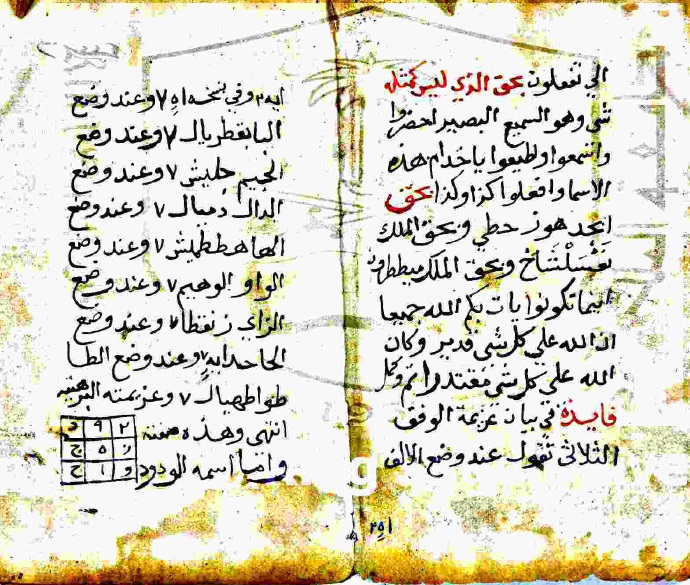 الي تفعلون بحق الذي ليس كمثله
شي وهو السميع البصير احضروا
واسمعوا واطيعوا يا خدام هذه
الاسما وافعلوا كذا وكذا بحق
ابجد هوز حطي وبحق الملك
وبحق الملك ميططرون
اينما تكونوا يات بكم الله جميعا
ان الله علي كل شي قدير وكان
الله علي كل شي مقتدرا تم وكمل
فايدة في بيان عزيمة الوفق
الثلاثي تقول عند وضع الالف
وفي نسخه ٧ وعند وضع
البا بقطريال ٧ وعند وضع
الجيم جليش ٧ وعند وضع
الدال دميال ٧ وعند وضع
الها هططظهليش ٧ وعند وضع
الواو الوهيم ٧ وعند وضع
الزاي زنقطا ٧ وعند وضع
الحا ٧ وعند وضع الطا
طواطهيال ٧ وعزيمته
انتهي وهذه صفته
واما اسمه الودود
٢ ٩ د
ز ٥ ج
و ا ح